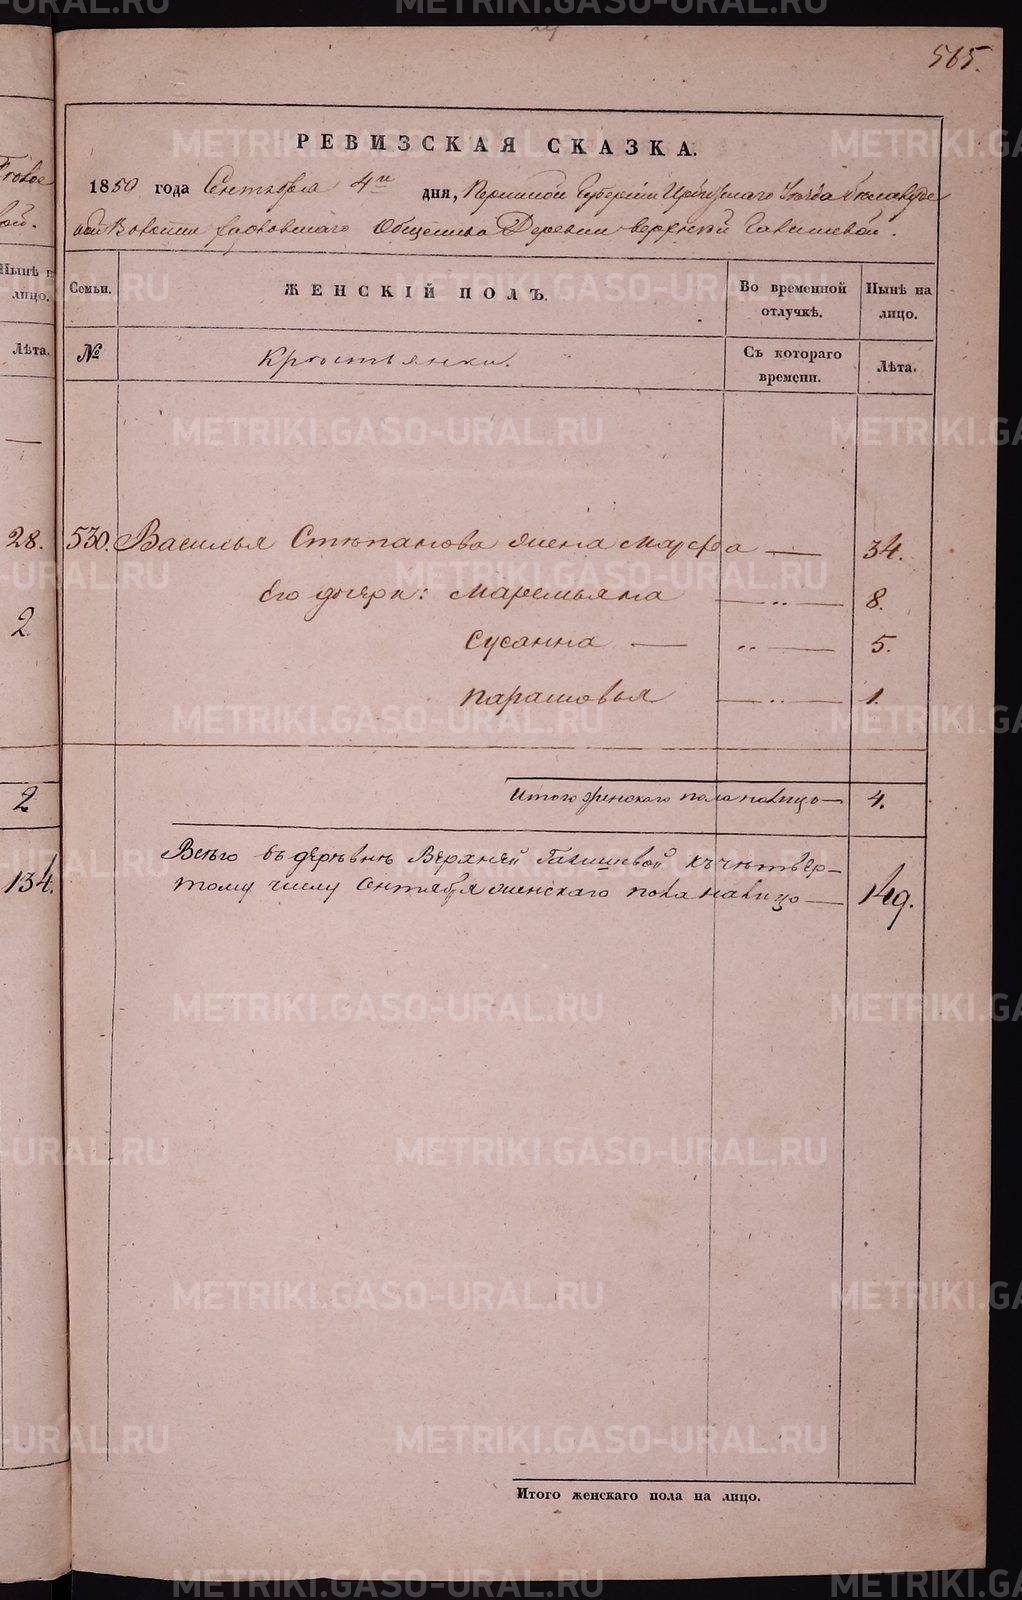 565.
РЕВИЗСКАЯ СКАЗКА.
1850 года Сентября 4го дня, Пермской Губерніи Ирбитскаго Уезда
Волости Общества Деревни Верхней Гавышевой.
Семьи. ЖЕНСКІЙ ПОЛЪ. Во временной отлучкѣ. Нынѣ на лицо.
№ Крестьянки. Съ котораго времени. Лѣта.
530. Василья Степанова жена Марфа — 34.
Его дочери: Маремьяна — „ — 8.
Сусанна — „ — 5.
Парасковья — „ — 1.
Итого женскаго пола налицо — 4.
Всего въ деревнѣ Верхней къ четвер-
тому числу Сентября женскаго пола налицо —
Итого женскаго пола на лицо.
Нынѣ н
лицо.
Лѣта.
28.
2
2
134.
METRIKI.GASO-URAL.RU